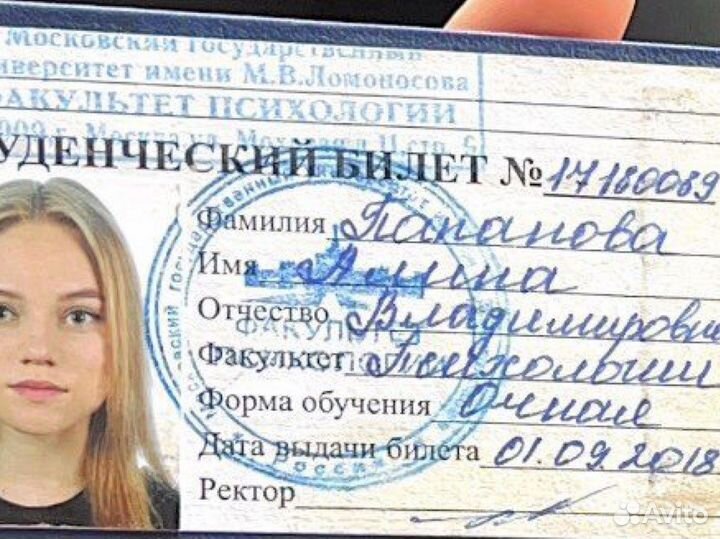 Московский государственный
университет имени М.В.Ломоносова
ФАКУЛЬТЕТ ПСИХОЛОГИИ
г. Москва ул. Моховая д. 11, стр. 5
УДЕНЧЕСКИЙ БИЛЕТ №17180089
Фамилия Папанова
Имя Алина
Отчество Владимировна
Факультет Психологии
Форма обучения Очная
Дата выдачи билета 01.09.2018
Ректор
Avito